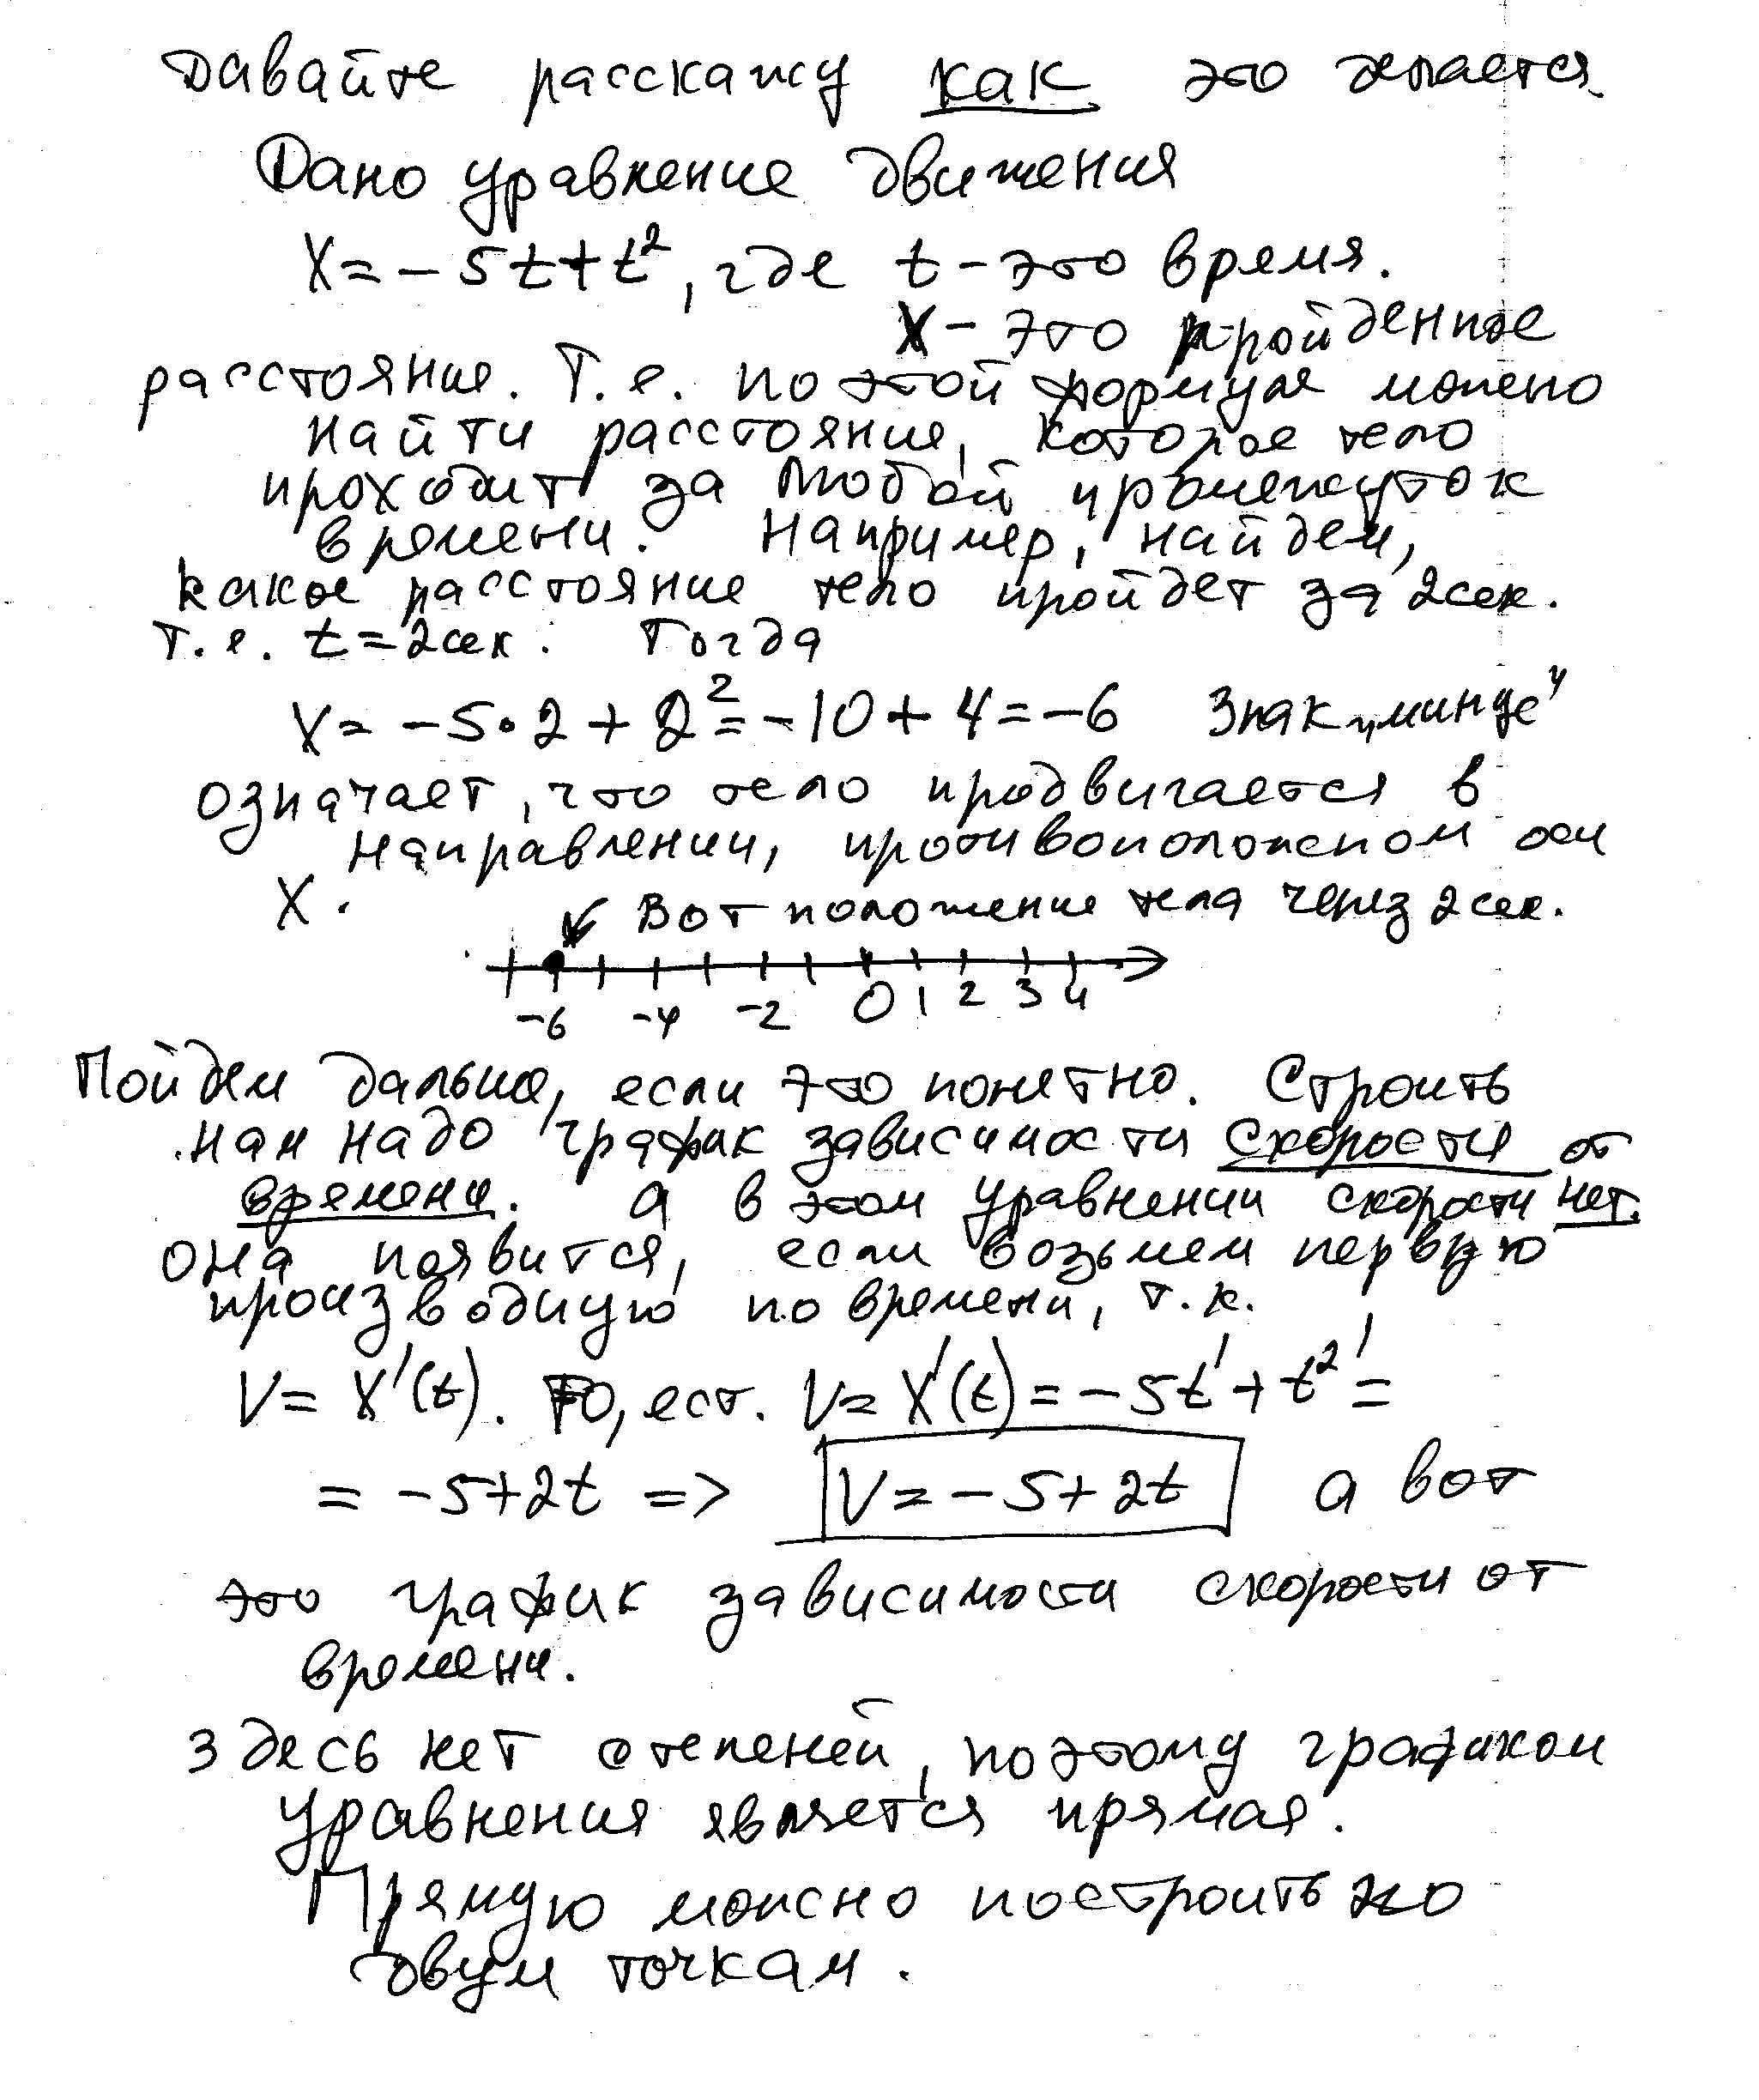 Давайте расскажу как это делается.
Дано уравнение движения
X = -5t + t², где t - это время.
X - это пройденное
расстояние. Т.е. по этой формуле можно
найти расстояние, которое тело
проходит за любой промежуток
времени. Например, найдем,
какое расстояние тело пройдет за 2 сек.
т.е. t = 2 сек. Тогда
X = -5·2 + 2² = -10 + 4 = -6 Знак „минус"
означает, что тело продвигается в
направлении, противоположном оси
X.
Вот положение тела через 2 сек.
-6 -4 -2 0 1 2 3 4
Пойдем дальше, если это понятно. Строить
нам надо график зависимости скорости от
времени. а в этом уравнении скорости нет.
она появится, если возьмем первую
производную по времени, т.к.
V = X'(t). То, ест. V = X'(t) = -5t' + t²' =
= -5 + 2t => V = -5 + 2t а вот
это график зависимости скорости от
времени.
Здесь нет степеней, поэтому графиком
уравнения является прямая.
Прямую можно построить по
двум точкам.